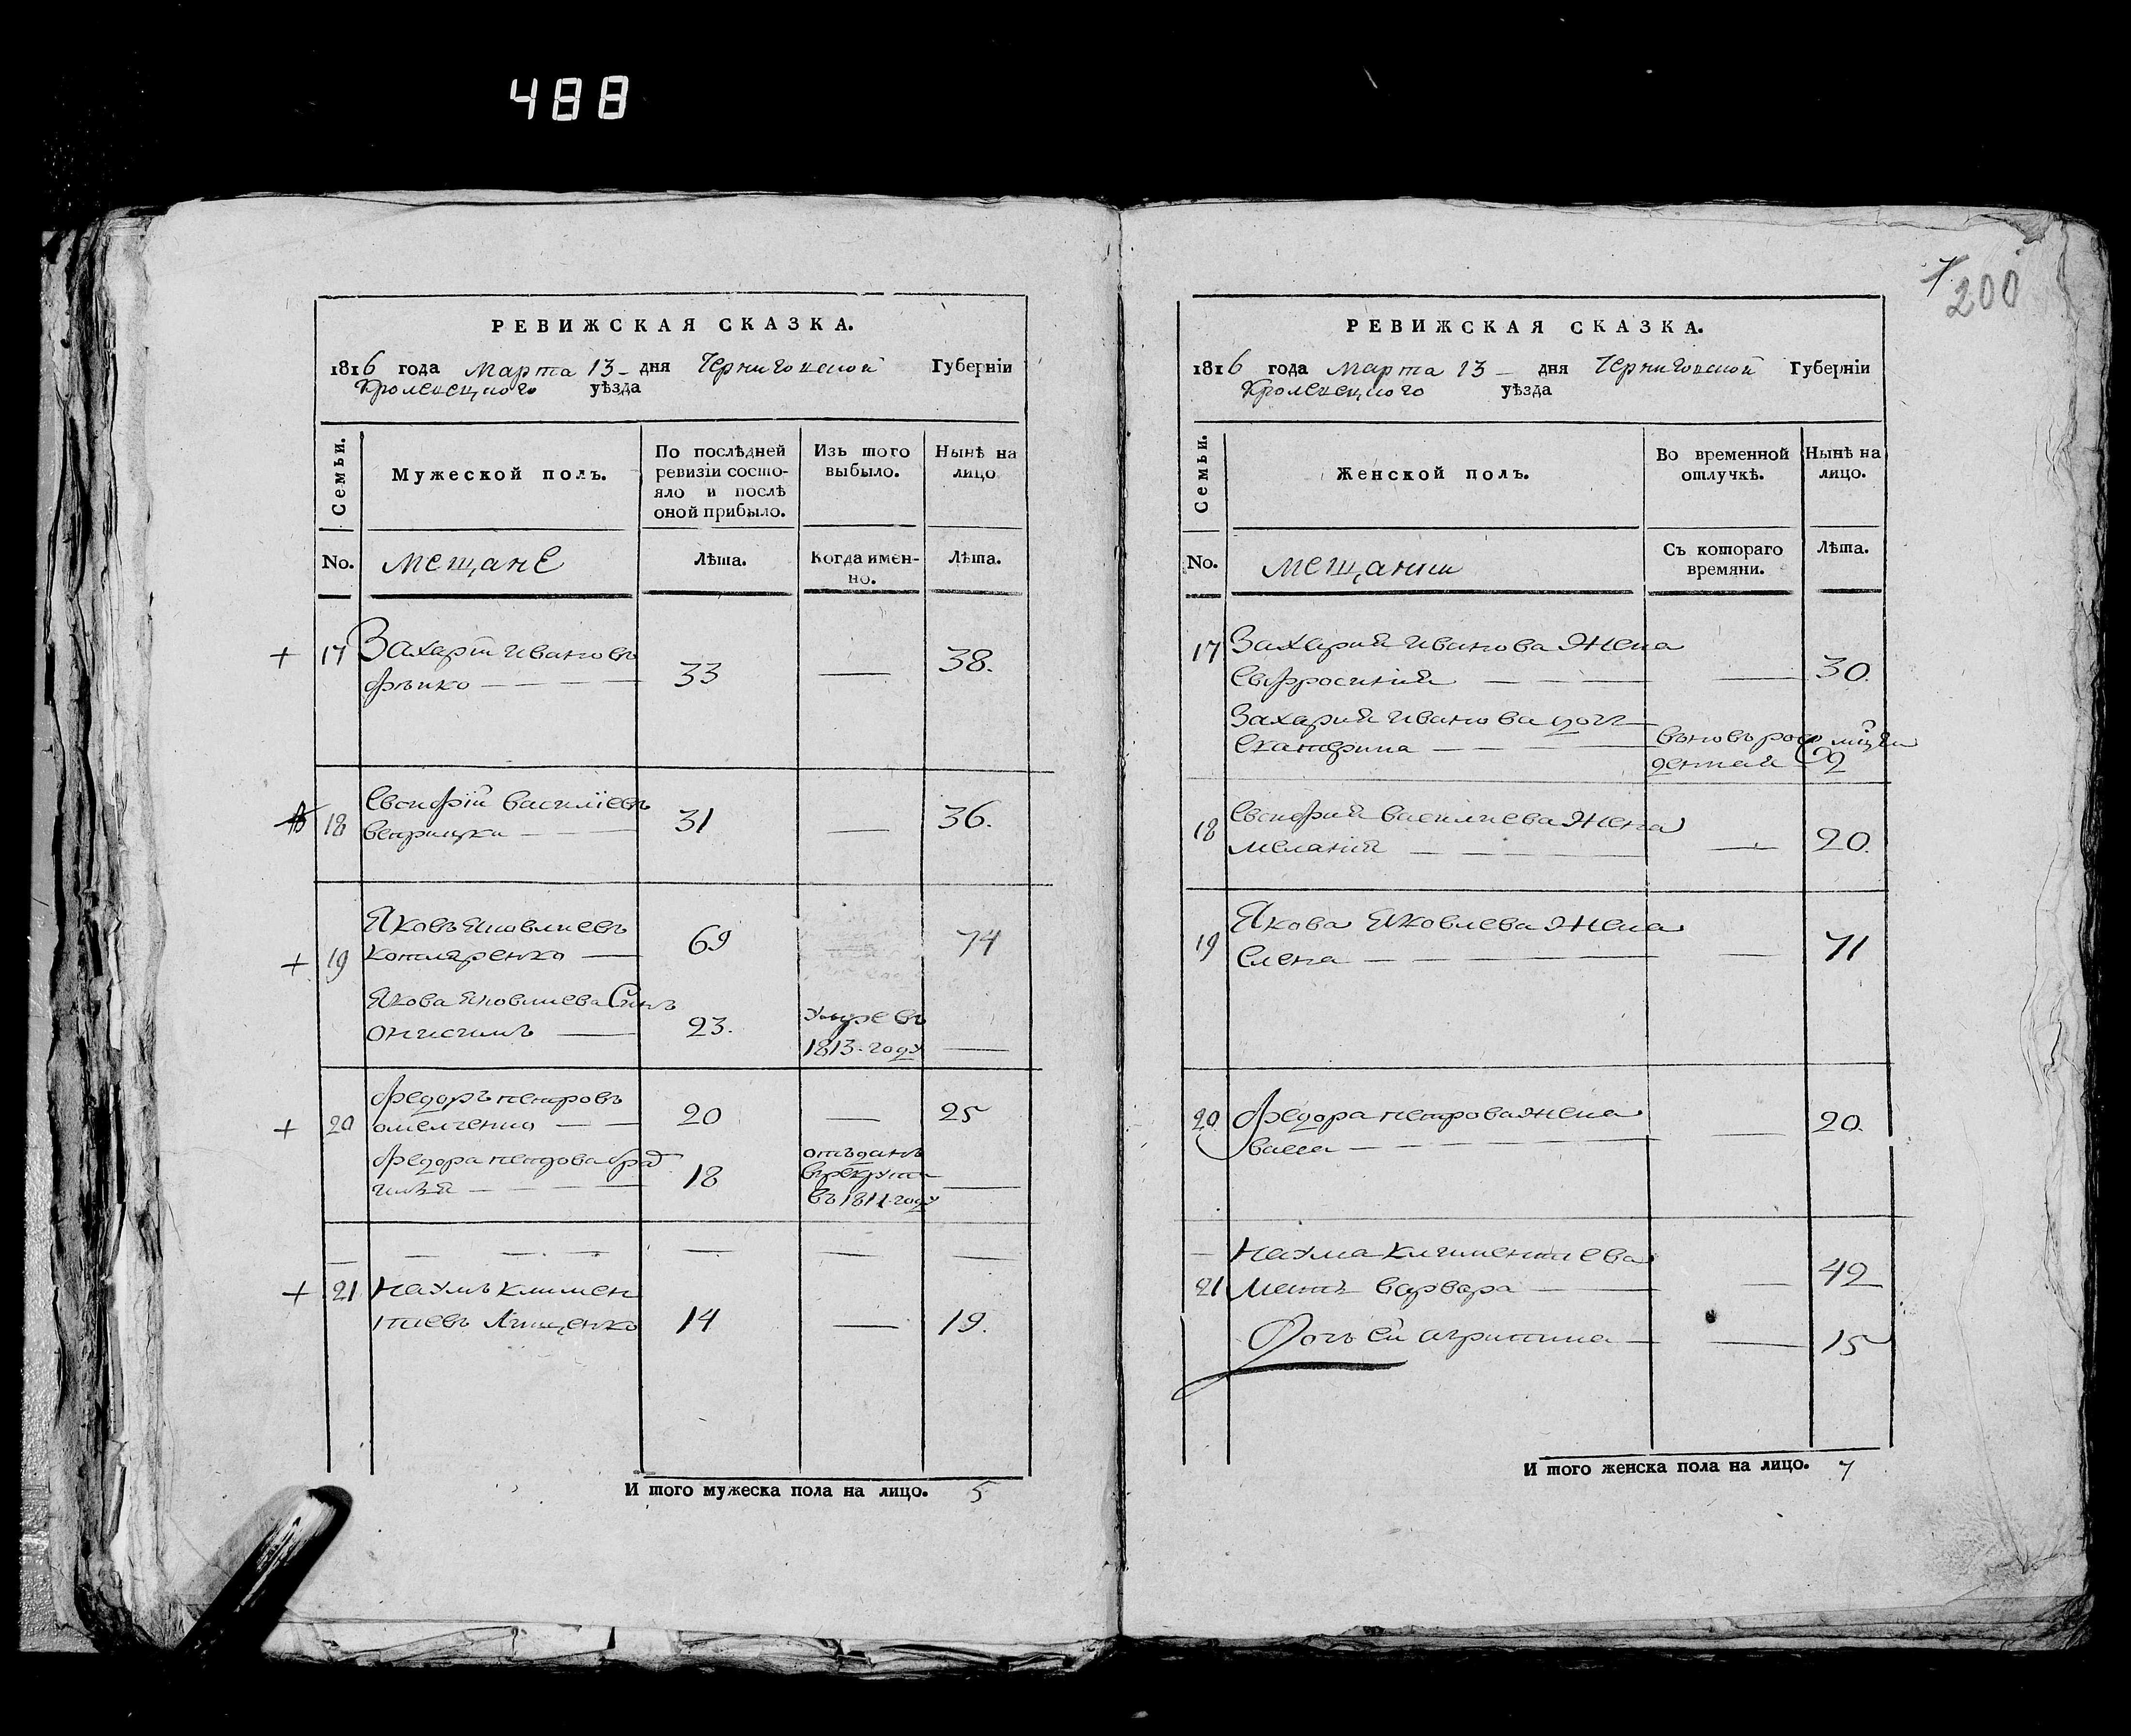 488
РЕВИЖСКАЯ СКАЗКА.
1816 года Марта 13 – дня Черниговской Губерніи
Кролевецкого уѣзда
Семьи.
Мужеской полъ.
По послѣдней ревизіи состо-
яло и послѣ
оной прибыло.
Изъ того
выбыло.
Нынѣ на
лицо
No.
мещане
Лѣта.
Когда имен-
но.
Лѣта.
+ 17 Захарій Ивановъ
33 — 38.
18 Василіевъ
31 — 36.
+ 19 Яковъ Яковлиевъ
котляренко — 69 74
Якова Яковлиева Синъ
онисимъ — 23.
умре въ
1813-году —
+ 20 Федоръ петровъ
омелченко — — 20 — 25
Федора петрова брат
18
отъданъ
в рекруты
въ 1811-году —
+ 21 Наумъ климен
тиевъ Лищенко 14 — 19.
И того мужеска пола на лицо. 5
200
РЕВИЖСКАЯ СКАЗКА.
1816 года Марта 13 – дня Черниговской Губерніи
Кролевецкого уѣзда
Семьи.
Женской полъ.
Во временной
отлучкѣ.
Нынѣ на
лицо.
No.
мещанки
Съ котораго
времяни.
Лѣта.
17 Захария Иванова Жена
Евфросиния — — — — 30.
Захария Иванова дочь
екатерина — — —
въновъ рож
денная 2
18 Василиева Жена
мелания — — — — 20.
19 Якова Яковлева Жена
Елена — — — — 71
20 Федора петрова жена
васса — — — — 20.
Наума климентиева
21 Мать варвара — — 42
Дочь ей агрипина — — 15
И того женска пола на лицо. 7